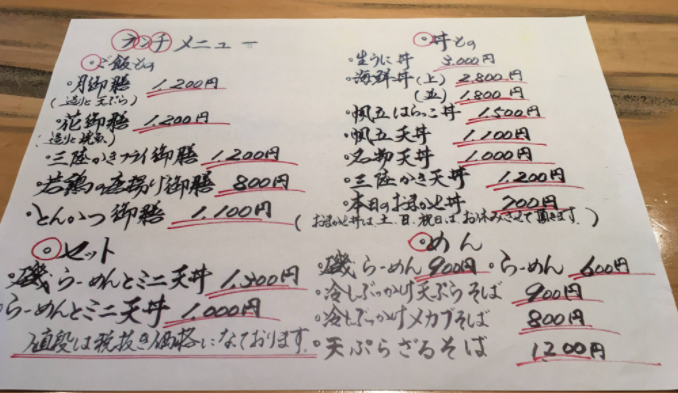 ランチメニュー
・ご飯もの
・月御膳 1,200円
(造りと天ぷら)
・花御膳 1,200円
(造りと焼魚)
・三陸かきフライ御膳 1,200円
・若鶏の唐揚げ御膳 800円
・とんかつ御膳 1,100円
・セット
・磯らーめんとミニ天丼 1,300円
・らーめんとミニ天丼 1,000円
値段は税抜き価格になっております。
・丼もの
・生うに丼 3,000円
・海鮮丼(上) 2,800円
(並) 1,800円
・帆立はらっこ丼 1,500円
・帆立天丼 1,100円
・名物天丼 1,000円
・三陸かき天丼 1,200円
・本日のおまかせ丼 700円
(おまかせ丼は、土、日、祝日はお休みさせて頂きます。)
・めん
・磯らーめん 900円 ・らーめん 600円
・冷しぶっかけ天ぷらそば 900円
・冷しぶっかけメカブそば 800円
・天ぷらざるそば 1200円